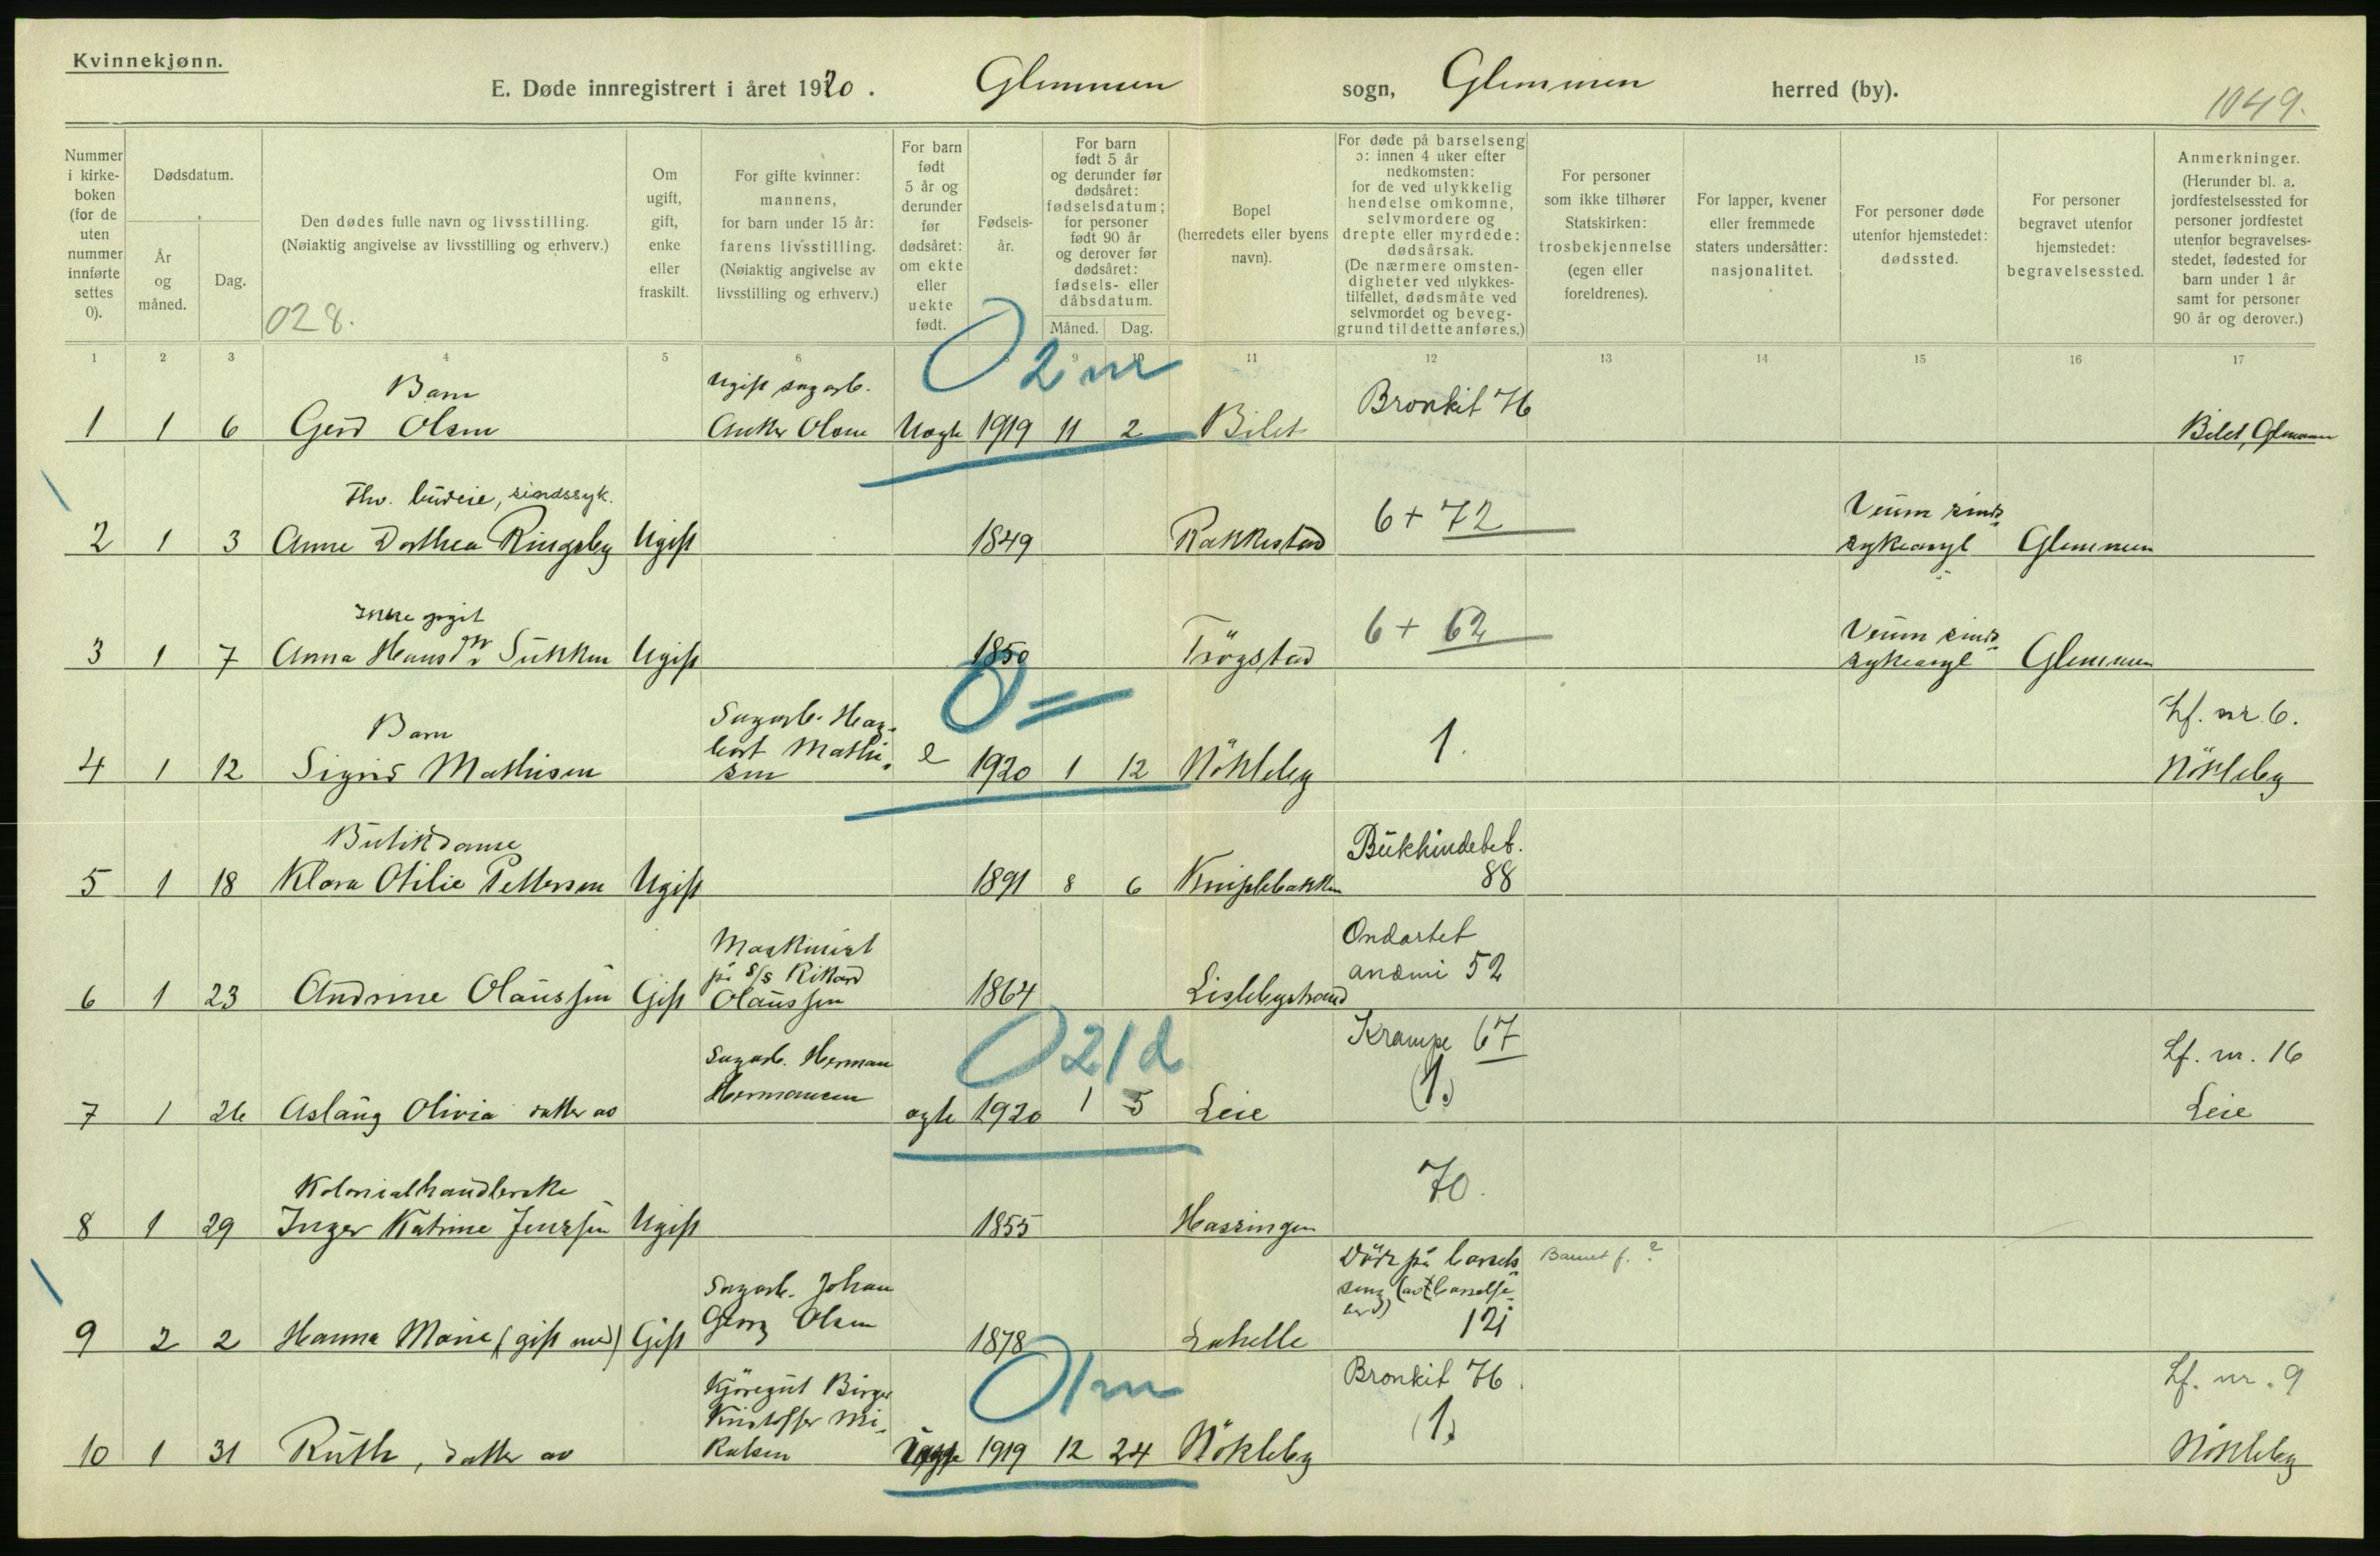 Kvinnekjønn.
E. Døde innregistrert i året 1920. Glemmen sogn, Glemmen herred (by).
1049.
Nummer i kirke-boken (for de uten nummer innførte settes 0).
Dødsdatum.
År og måned.
Dag.
Den dødes fulle navn og livsstilling.
(Nøiaktig angivelse av livsstilling og erhverv.)
028.
Om ugift, gift, enke eller fraskilt.
For gifte kvinner: mannens, for barn under 15 år: farens livsstilling. (Nøiaktig angivelse av livsstilling og erhverv.)
For barn født 5 år og derunder før dødsåret: om ekte eller uekte født.
Fødsels-år.
For barn født 5 år og derunder før dødsåret: fødselsdatum; for personer født 90 år og derover før dødsåret: fødsels- eller dåbsdatum.
Måned. Dag.
Bopel (herredets eller byens navn).
For døde på barselseng ɔ: innen 4 uker efter nedkomsten: for de ved ulykkelig hendelse omkomne, selvmordere og drepte eller myrdede: dødsårsak. (De nærmere omsten-digheter ved ulykkes-tilfellet, dødsmåte ved selvmordet og beveg-grund til dette anføres.)
For personer som ikke tilhører Statskirken: trosbekjennelse (egen eller foreldrenes).
For lapper, kvener eller fremmede staters undersåtter: nasjonalitet.
For personer døde utenfor hjemstedet: dødssted.
For personer begravet utenfor hjemstedet: begravelsessted.
Anmerkninger. (Herunder bl. a. jordfestelsessted for personer jordfestet utenfor begravelses-stedet, fødested for barn under 1 år samt for personer 90 år og derover.)
1 2 3 4 5 6 8 9 10 11 12 13 14 15 16 17
Barn Ugift sagarb. 0 2 m Bronkit 76
1 1 6 Gerd Olsen Anker Olsen Uegte 1919 11 2 Bilet Bilet, Glemmen
Thv. budeie, sindssyk. 6 + 72 Veum sinds
2 1 3 Anne Dorthea Ringsby Ugift 1849 Rakkestad sykeasyl Glemmen
Ikke opgit 6 + 62 Veum sinds
3 1 7 Anna Hansdtr Sukken Ugift 1850 Trögstad sykeasyl Glemmen
Barn Sagarb. Hag- 0 = 1. Lf. nr. 6.
bart Mathi-
4 1 12 Sigrid Mathisen sen e 1920 1 12 Nökleby Nökleby
Butikdame Bukhindebet.
5 1 18 Klara Otilie Pettersen Ugift 1891 8 6 Kniplebakken 88
Maskinist Ondartet
på s/s Rikard anæmi 52
6 1 23 Andrine Olaussen Gift Olaussen 1864 Lislebystrand
Sagarb. Herman 0 21 d Krampe 67 Lf. nr. 16
7 1 26 Aslaug Olivia datter av Hermansen ægte 1920 1 5 Leie (1.) Leie
Kolonialhandlerske 70.
8 1 29 Inger Katrine Jenssen Ugift 1855 Hassingen
Sagarb. Johan Död på barsels Barnet f. ?
seng (av barselfe-
ber)
9 2 2 Hanna Marie (gift med) Gift Georg Olsen 1878 Lahelle 12j
Kjöregut Birger 0 1 m Bronkit 76. Lf. nr. 9
Kristoffer Mi-
10 1 31 Ruth, datter av kalsen 1919 12 24 Nökleby (1.) Nökleby